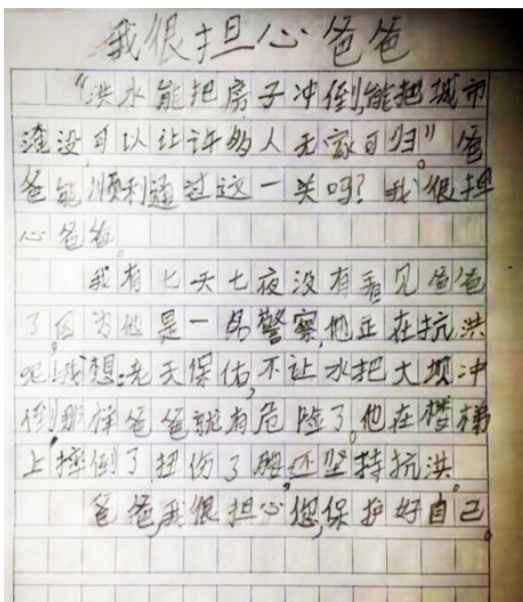 我很担心爸爸
“洪水能把房子冲倒,能把城市
淹没,可以让许多人无家可归”。爸
爸能顺利通过这一关吗?我很担
心爸爸。
我有七天七夜没有看见爸爸
了,因为他是一名警察,他正在抗洪
呢!我想:老天保佑,不让水把大坝冲
倒,那样爸爸就有危险了。他在楼梯
上摔倒了,扭伤了腿,还坚持抗洪。
爸爸,我很担心您,保护好自己。